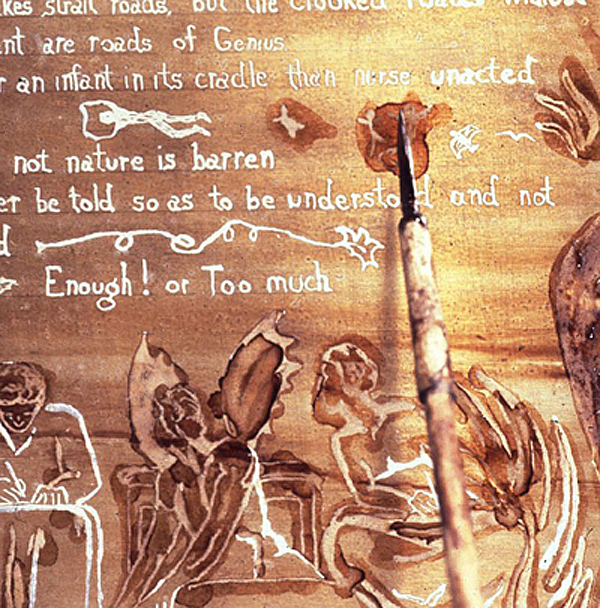 kes strait roads, but the crooked roads without
nt are roads of Genius.
r an infant in its cradle than nurse unacted
not nature is barren
er be told so as to be understood and not
d
Enough! or Too much